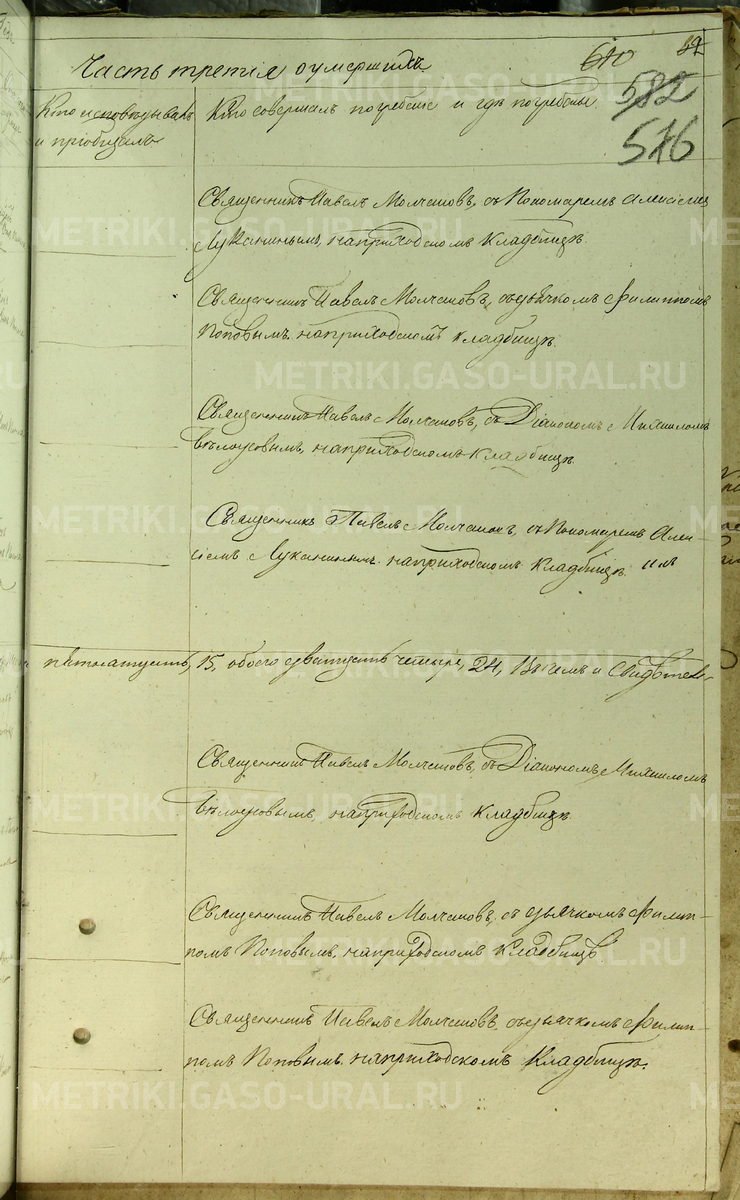 Часть третія о умершихъ
610
59
582
576
Кто исповѣдывалъ
и пріобщалъ
Кто совершалъ погребеніе и гдѣ погребены.
Священникъ Павелъ Молчановъ, съ Пономаремъ Алексіемъ
Луканинымъ, на приходскомъ кладбищѣ.
Священникъ Павелъ Молчановъ, съ дьячкомъ Филиппомъ
Поповымъ. на приходскомъ кладбищѣ.
Священникъ Павелъ Молчановъ, съ Діакономъ Михаиломъ
Бѣлоусовымъ, на приходскомъ кладбищѣ
Священникъ Павелъ Молчановъ, съ Пономаремъ Алек-
сіемъ Луканинымъ. на приходскомъ кладбищѣ.
пятнатцать, 15, обоего дватцать четыре, 24, Въ чемъ и свидѣтель-
Священникъ Павелъ Молчановъ, съ Діакономъ Михаиломъ
Бѣлоусовымъ, на приходскомъ кладбищѣ
Священникъ Павелъ Молчановъ, съ дьячкомъ Филип-
помъ Поповымъ, на приходскомъ кладбищѣ.
Священникъ Павелъ Молчановъ, съ дьячкомъ Филип-
помъ Поповымъ. на приходскомъ кладбищѣ.
METRIKI.GASO-URAL.RU